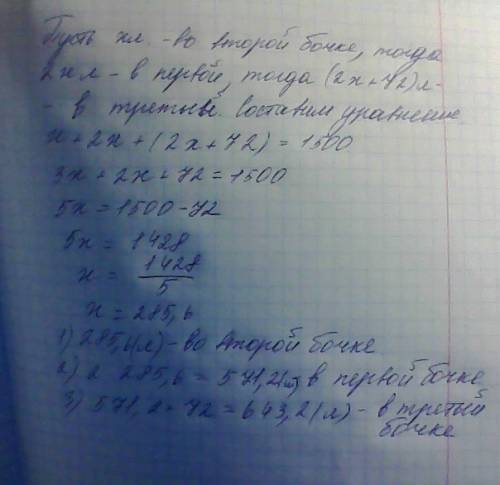 Пусть х л. - во второй бочке, тогда
2х л - в первой, тогда (2х+72) л -
- в третьей. Составим уравнение
х + 2х + (2х + 72) = 1500
3х + 2х + 72 = 1500
5х = 1500 - 72
5х = 1428
х = 1428/5
х = 285,6
1) 285,6 (л) - во второй бочке
2) 2 · 285,6 = 571,2 (л) в первой бочке
3) 571,2 + 72 = 643,2 (л) - в третьей
бочке